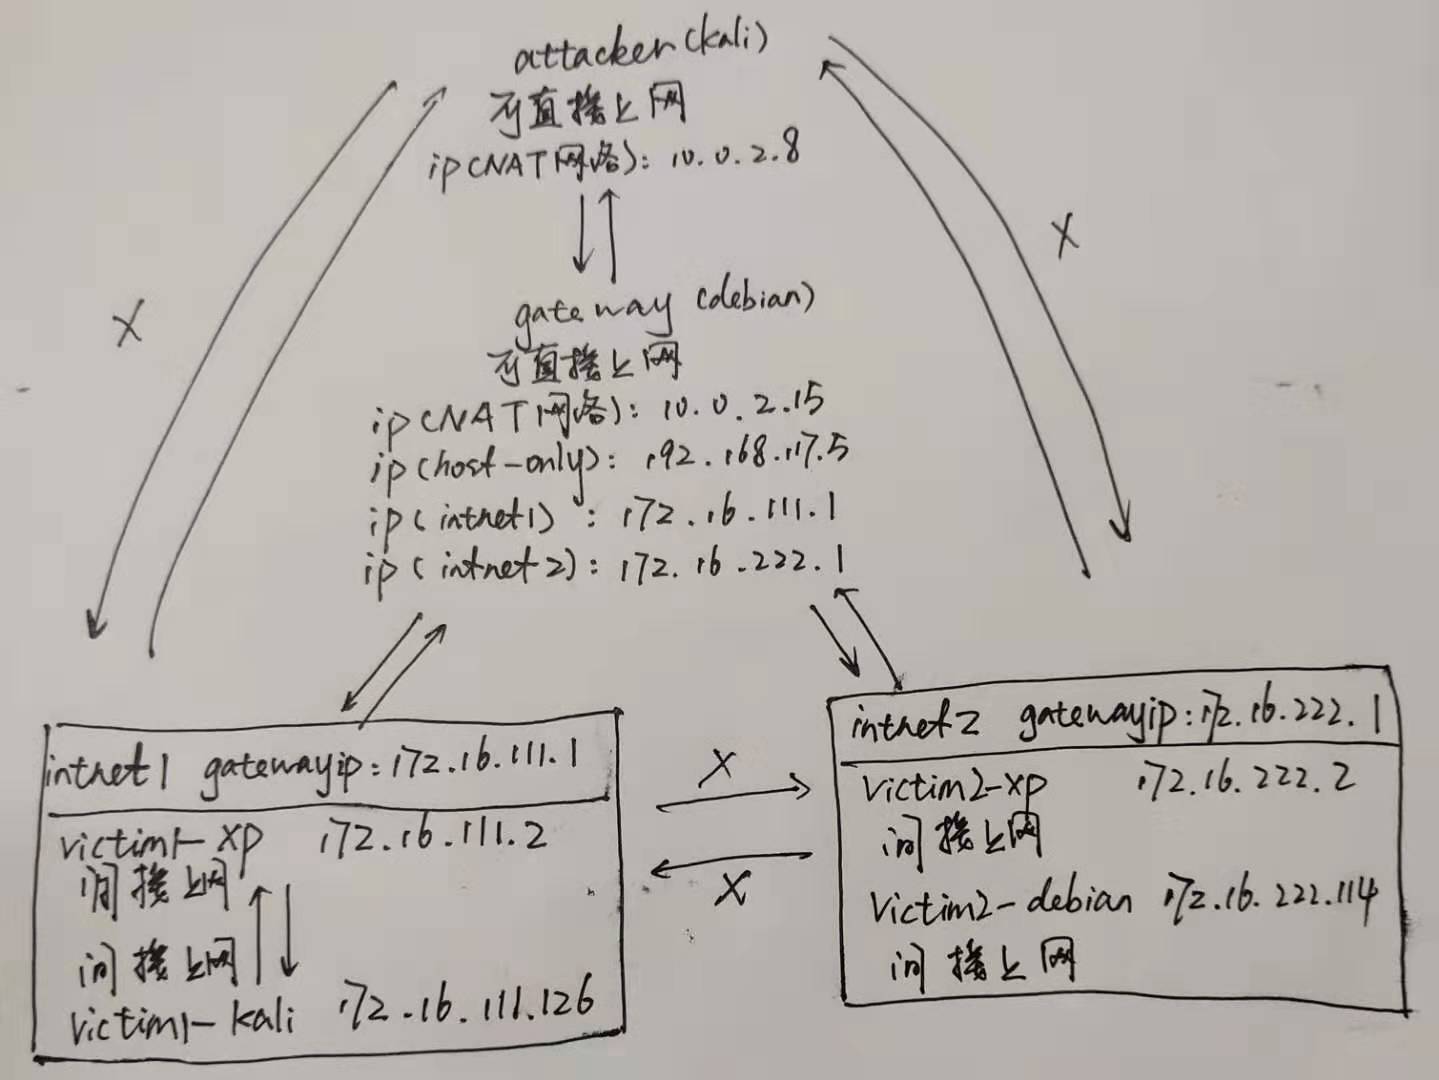 attacker(kali)
可直接上网
ip(NAT网络): 10.0.2.8
X
X
gateway (debian)
可直接上网
ip(NAT网络): 10.0.2.15
ip(host-only): 192.168.117.5
ip(intnet1) : 172.16.111.1
ip(intnet2): 172.16.222.1
intnet1 gatewayip: 172.16.111.1
victim1-xp 172.16.111.2
间接上网
间接上网
victim1-kali 172.16.111.126
X
X
intnet2 gatewayip: 172.16.222.1
victim2-xp 172.16.222.2
间接上网
victim2-debian 172.16.222.114
间接上网